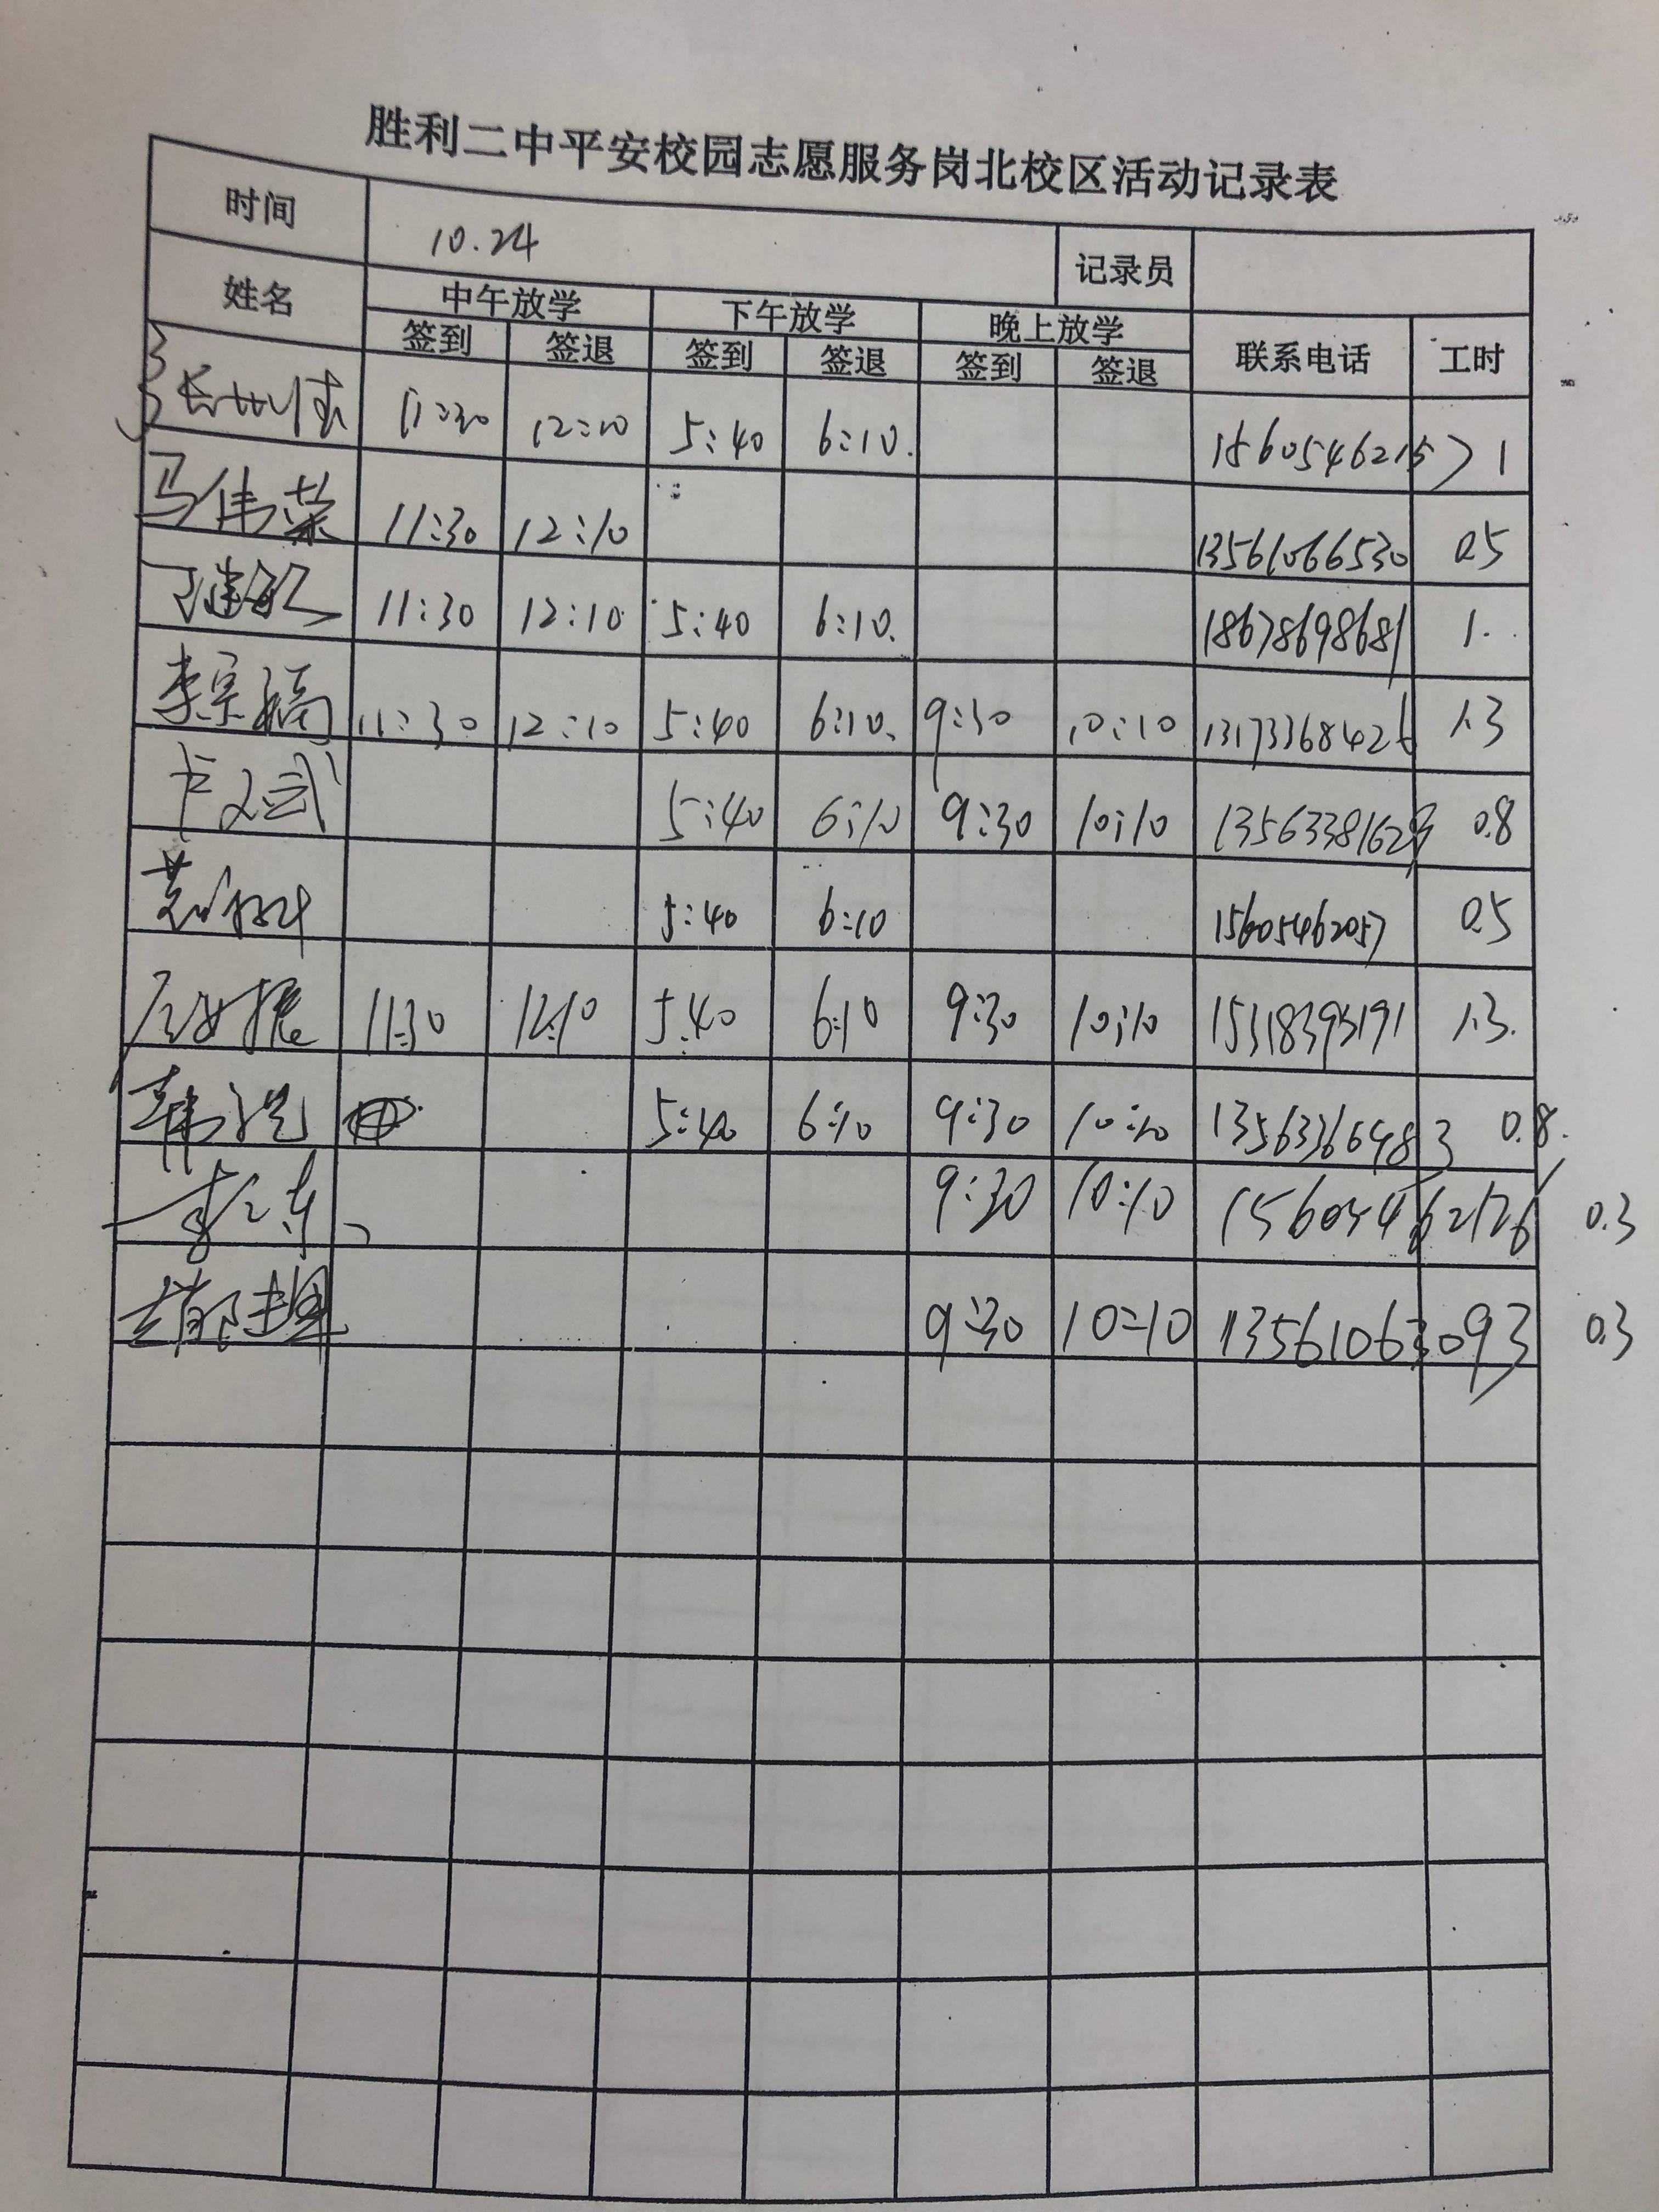 胜利二中平安校园志愿服务岗北校区活动记录表
时间 10.24 记录员
姓名 中午放学 下午放学 晚上放学 联系电话 工时
签到 签退 签到 签退 签到 签退
11:30 12:10 5:40 6:10. 1
马伟荣 11:30 12:10 13561066530 0.5
11:30 12:10 5:40 6:10. 18678698681 1.
李宗 11:30 12:10 5:40 6:10. 9:30 10:10 13173368426 1.3
卞文武 5:40 6:10 9:30 10:10 0.8
5:40 6:10 15605462057 0.5
11:30 12:10 5:40 6:10 9:30 10:10 15318393191 1.3.
韩 5:40 6:10 9:30 10:10 13563366483 0.8.
9:30 10:10 15605462126 0.3
9:30 10:10 13561063093 0.3